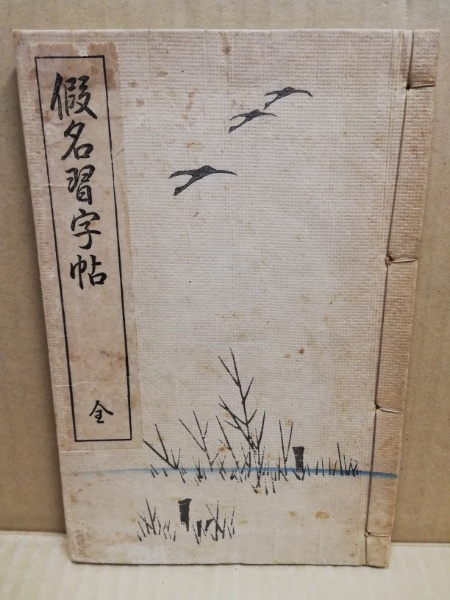 假名習字帖
全